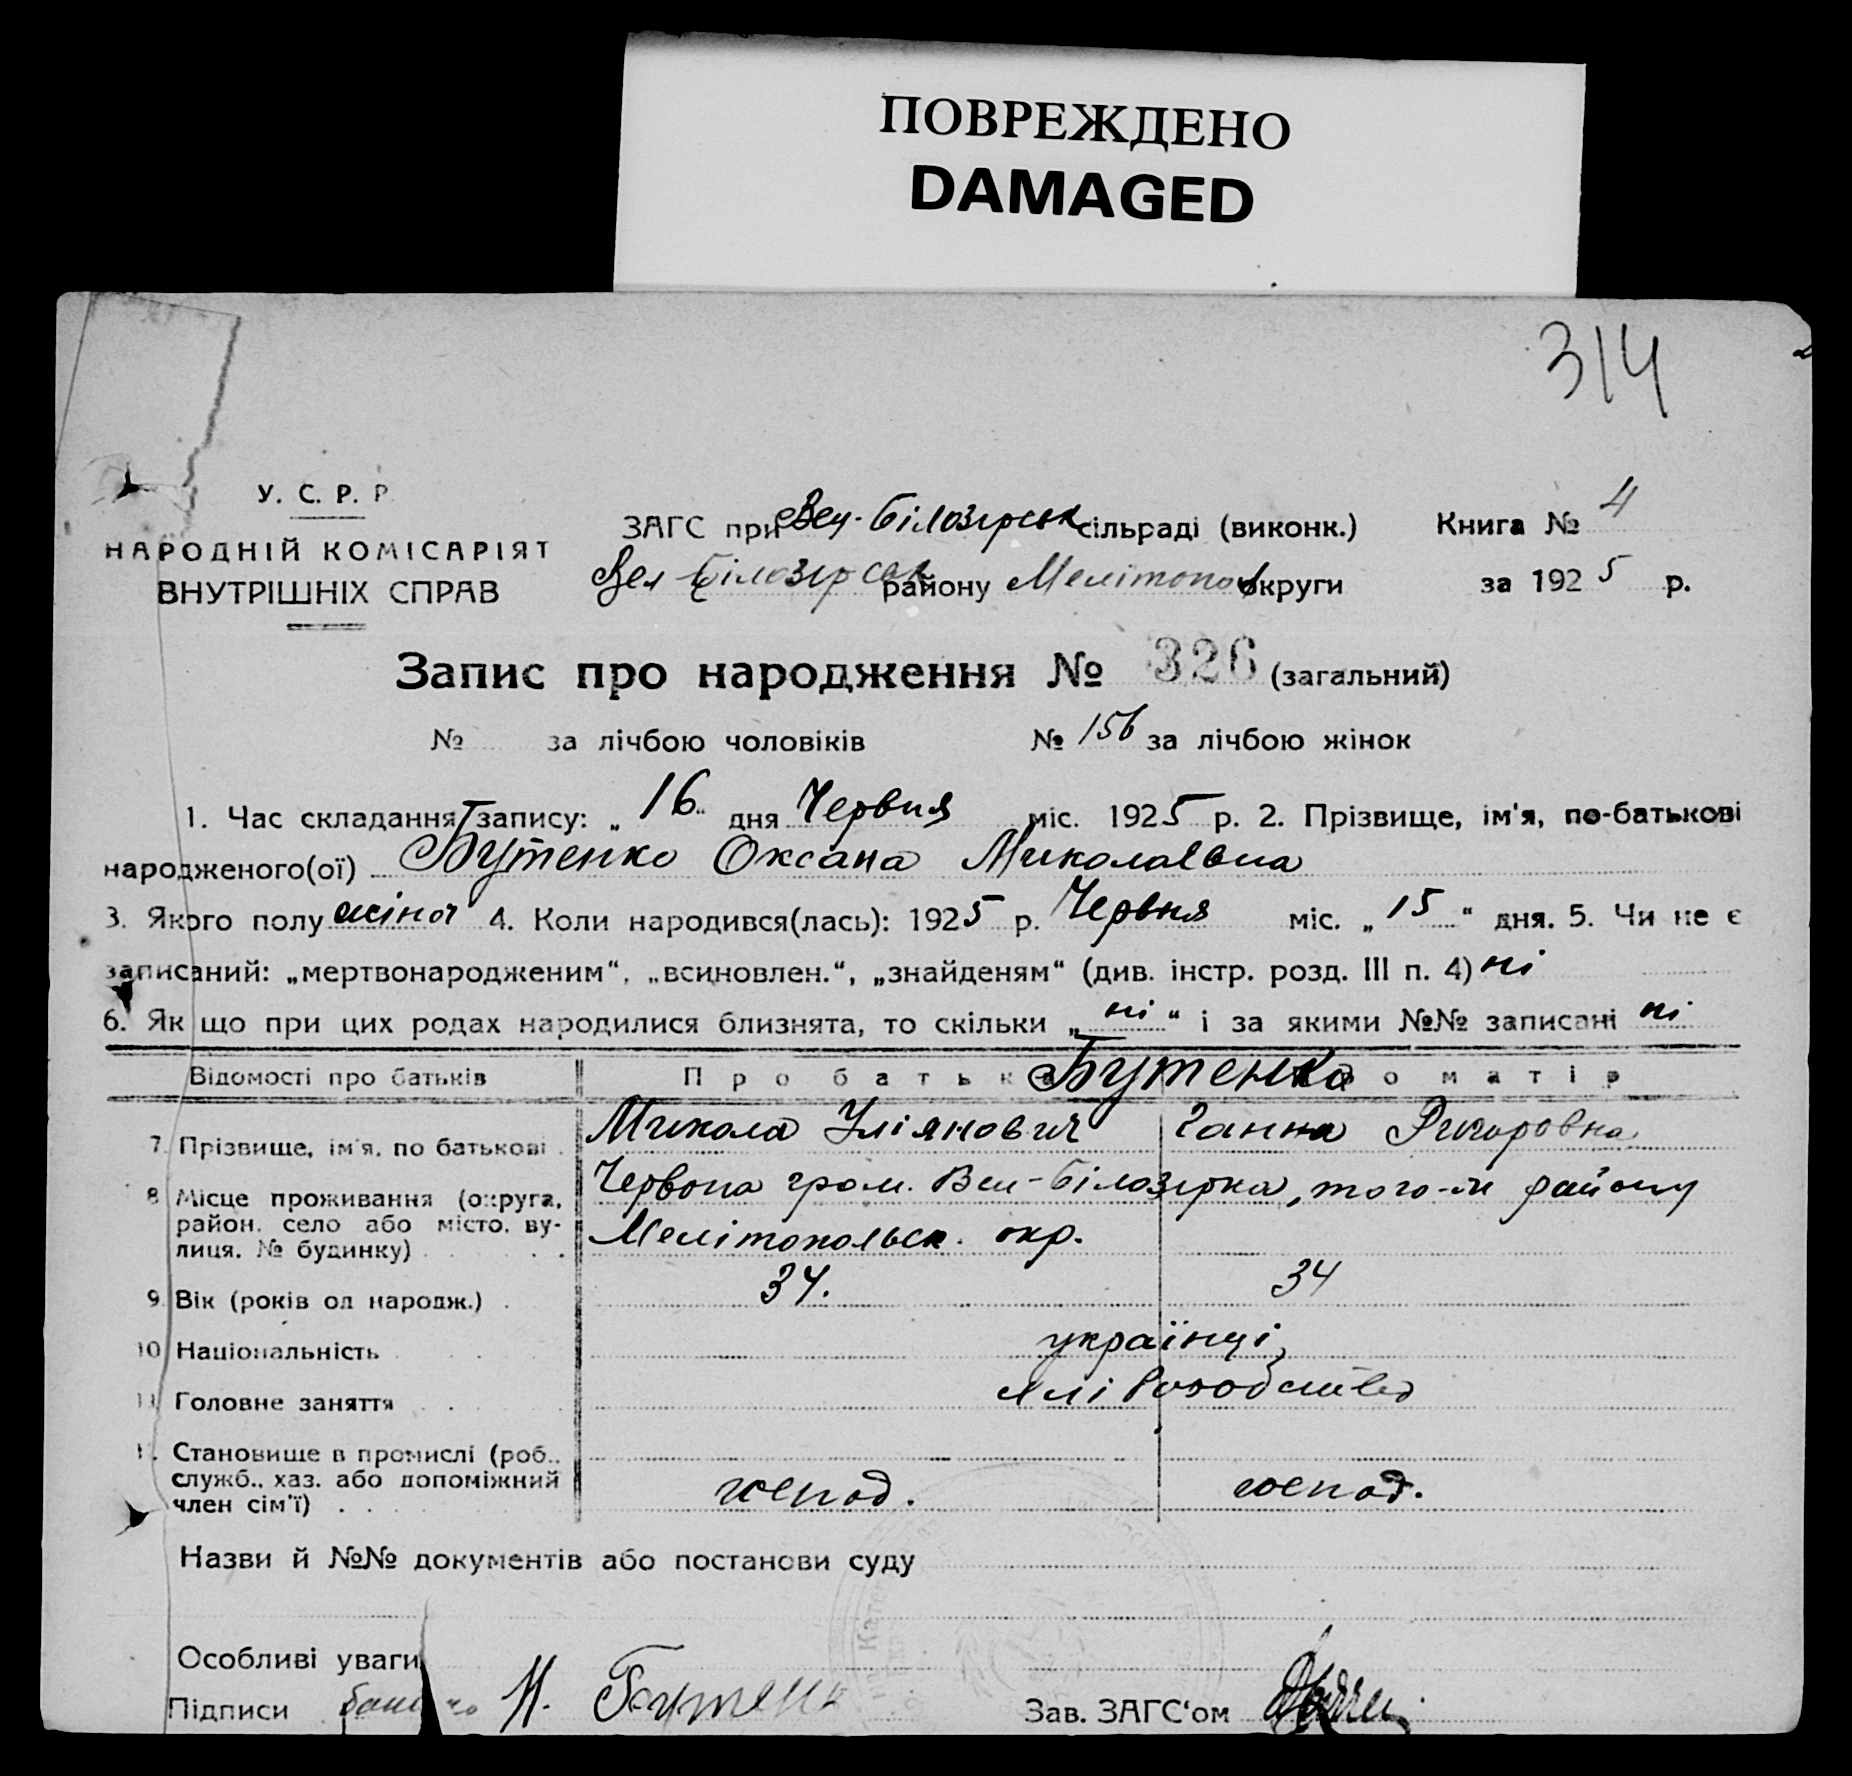 ПОВРЕЖДЕНО
DAMAGED
314
У. С. Р. Р.
НАРОДНІЙ КОМІСАРІЯТ
ВНУТРІШНІХ СПРАВ
ЗАГС при Вел-Білозірськ сільраді (виконк.) Книга № 4
Вел Білозірськ району Мелітопол округи за 1925 р.
Запис про народження № 326 (загальний)
№ за лічбою чоловіків № 156 за лічбою жінок
1. Час складання запису: „ 16 " дня Червня міс. 1925 р. 2. Прізвище, ім'я, по-батькові
народженого(ої) Бутенко Оксана Миколаївна
3. Якого полу жіноч 4. Коли народився(лась): 1925 р. Червня міс. „ 15 " дня. 5. Чи не є
записаний: „мертвонародженим", „всиновлен.", „знайденям" (див. інстр. розд. III п. 4) ні
6. Як що при цих родах народилися близнята, то скільки „ ні " і за якими №№ записані ні
Відомості про батьків Про батька Бутенко Про матір
7. Прізвище, ім'я, по батькові Микола Уліянович Ганна Григоровна
8. Місце проживання (округа, Червона гром. Вел-Білозірка, того-ж району
район, село або місто, ву- Мелітопольск. окр.
лиця, № будинку)
9. Вік (років од народж.) 34. 34
10. Національність українці
11. Головне заняття
12. Становище в промислі (роб.,
служб., хаз. або допоміжний господ. господ.
член сім'ї)
Назви й №№ документів або постанови суду
Особливі уваги
Підписи Н. Бутенк Зав. ЗАГС'ом